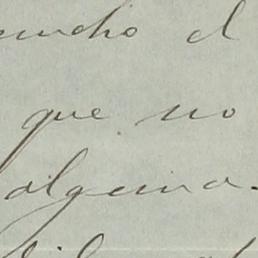 mucho el
que no
alguna